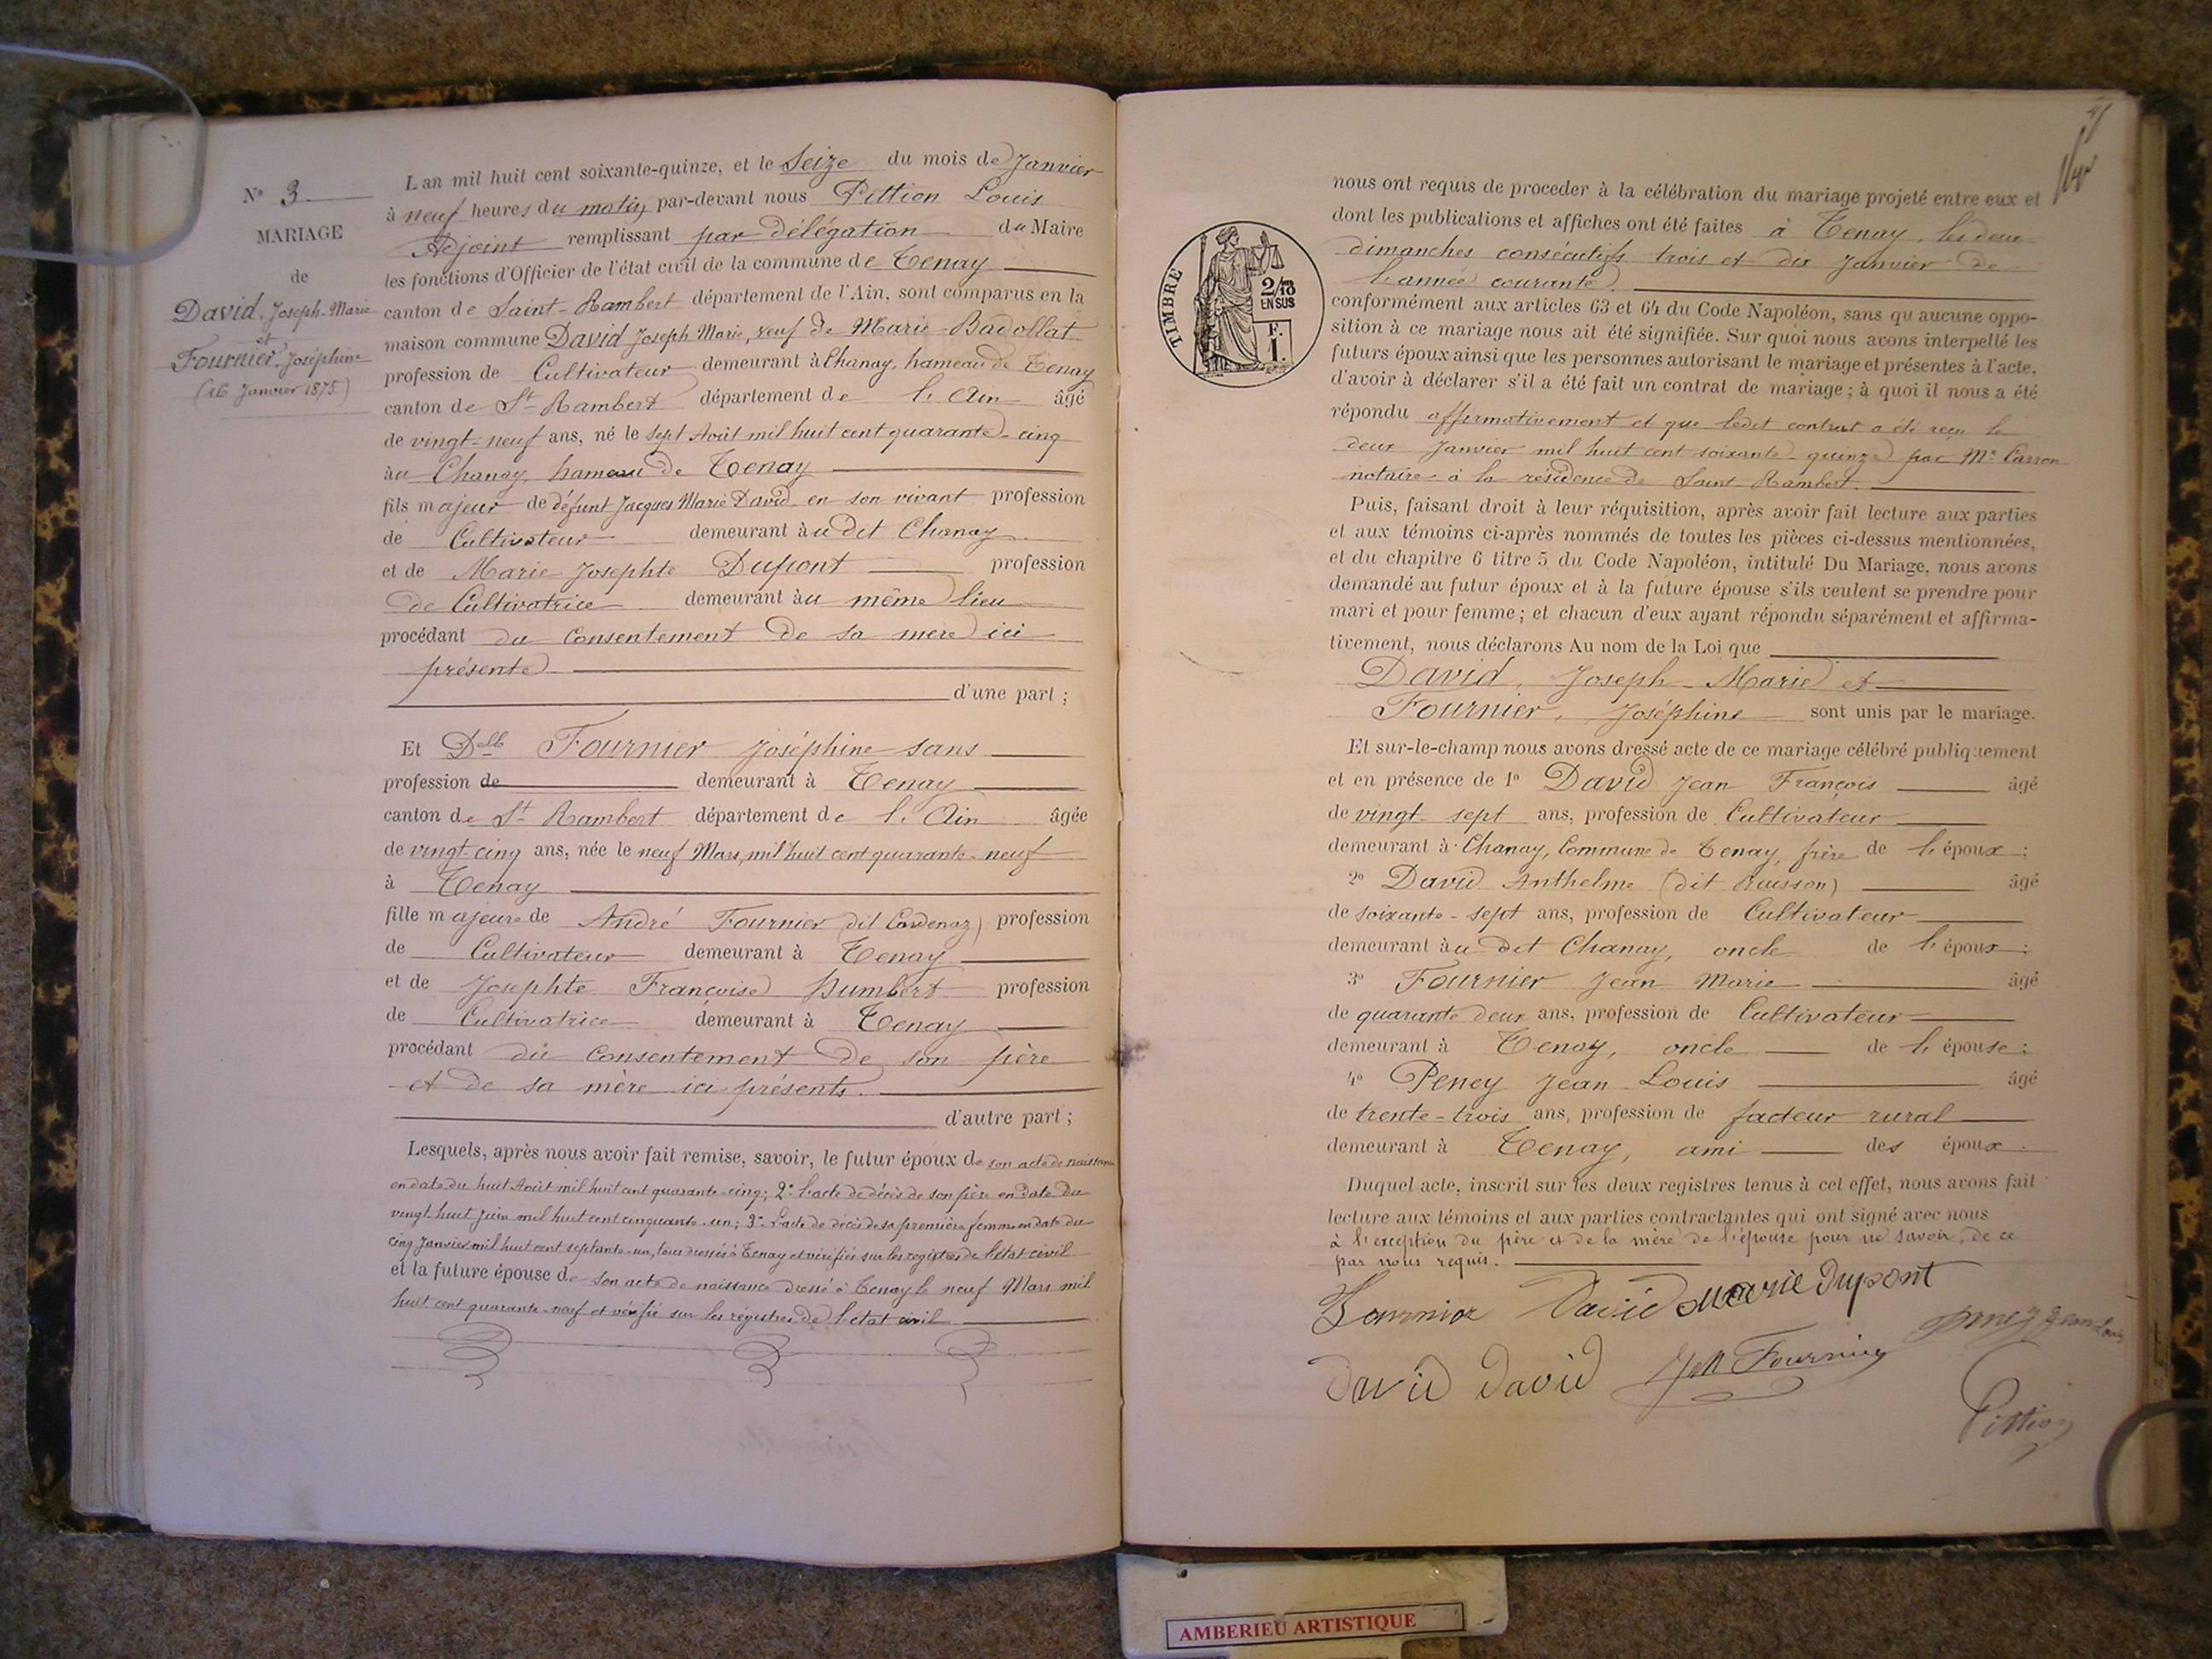 N° 3
MARIAGE
de
David, Joseph-Marie
et
Fournier, Joséphine
(16 Janvier 1875)
L an mil huit cent soixante-quinze, et le Seize du mois de Janvier
à neuf heures du matin par-devant nous Pittion Louis
Adjoint remplissant par délégation du Maire
les fonctions d'Officier de l'état civil de la commune de Tenay
canton de Saint-Rambert département de l'Ain, sont comparus en la
maison commune David Joseph Marie, veuf de Marie Badollat
profession de Cultivateur demeurant à Chanay, hameau de Tenay
canton de St Rambert département de l'Ain âgé
de vingt-neuf ans, né le sept Août mil huit cent quarante-cinq
au Chanay, hameau de Tenay
fils majeur de défunt Jacques Marie David en son vivant profession
de Cultivateur demeurant au dit Chanay
et de Marie Josephte Dupont profession
de Cultivatrice demeurant au même lieu
procédant du consentement de sa mère ici
présente
d'une part ;
Et Delle Fournier Joséphine sans
profession de demeurant à Tenay
canton de St Rambert département de l'Ain âgée
de vingt-cinq ans, née le neuf Mars, mil huit cent quarante-neuf
à Tenay
fille majeure de André Fournier (dit Cordenaz) profession
de Cultivateur demeurant à Tenay
et de Josephte Françoise Humbert profession
de Cultivatrice demeurant à Tenay
procédant du consentement de son père
et de sa mère ici présents.
d'autre part ;
Lesquels, après nous avoir fait remise, savoir, le futur époux de son acte de naissance
en date du huit Août mil huit cent quarante-cinq ; 2° l'acte de décès de son père en date du
vingt-huit Juin mil huit cent cinquante-un ; 3° l'acte de décès de sa première femme en date du
cinq Janvier mil huit cent septante-un, tous dressés à Tenay et vérifiés sur les registres de l'état civil
et la future épouse de son acte de naissance dressé à Tenay le neuf Mars mil
huit cent quarante-neuf et vérifié sur les régistres de l'état civil
TIMBRE
2/10
EN SUS
F.
1.
nous ont requis de proceder à la célébration du mariage projeté entre eux et
dont les publications et affiches ont été faites à Tenay, les deux
dimanches consécutifs trois et dix Janvier de
l'année courante.
conformément aux articles 63 et 64 du Code Napoléon, sans qu aucune oppo-
sition à ce mariage nous ait été signifiée. Sur quoi nous avons interpellé les
futurs époux ainsi que les personnes autorisant le mariage et présentes à l'acte,
d'avoir à déclarer s'il a été fait un contrat de mariage ; à quoi il nous a été
répondu affirmativement et que ledit contrat a été reçu le
deux Janvier mil huit cent soixante-quinze par Me Carron
notaire à la résidence de Saint Rambert.
Puis, faisant droit à leur réquisition, après avoir fait lecture aux parties
et aux témoins ci-après nommés de toutes les pièces ci-dessus mentionnées,
et du chapitre 6 titre 5 du Code Napoléon, intitulé Du Mariage, nous avons
demandé au futur époux et à la future épouse s'ils veulent se prendre pour
mari et pour femme ; et chacun d'eux ayant répondu séparément et affirma-
tivement, nous déclarons Au nom de la Loi que
David, Joseph-Marie et
Fournier, Joséphine sont unis par le mariage.
Et sur-le-champ nous avons dressé acte de ce mariage célébré publiquement
et en présence de 1° David Jean François âgé
de vingt-sept ans, profession de Cultivateur
demeurant à Chanay, Commune de Tenay, frère de l'époux ;
2° David Anthelme (dit Buisson) âgé
de soixante-sept ans, profession de Cultivateur
demeurant au dit Chanay, oncle de l'époux ;
3° Fournier Jean Marie âgé
de quarante deux ans, profession de Cultivateur
demeurant à Tenay, oncle de l'épouse ;
4° Peney Jean Louis âgé
de trente-trois ans, profession de facteur rural
demeurant à Tenay, ami des époux.
Duquel acte, inscrit sur les deux registres tenus à cet effet, nous avons fait
lecture aux témoins et aux parties contractantes qui ont signé avec nous
à l'exception du père et de la mère de l'épouse pour ne savoir, de ce
par nous requis.
Fournier David Marie Dupont
Peney Jean Louis
David David JM Fournier
Pittion
AMBERIEU ARTISTIQUE